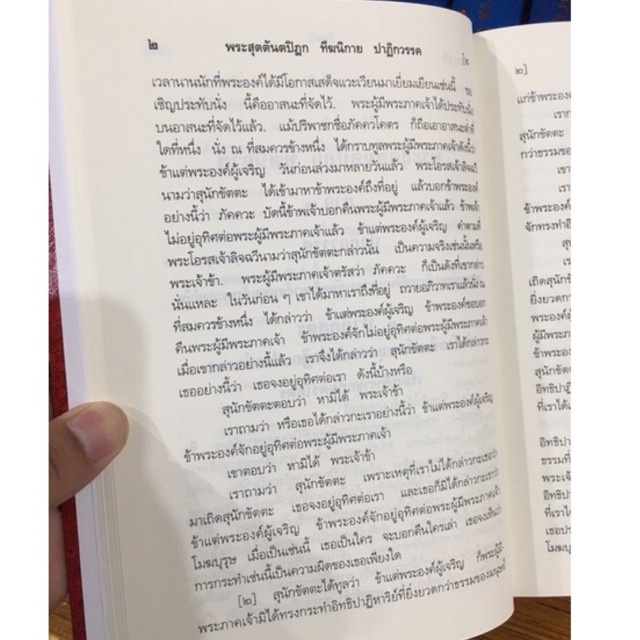 ๒ พระสุตตันตปิฎก ทีฆนิกาย ปาฏิกวรรค [๒
เวลานานนักที่พระองค์ได้มีโอกาสเสด็จแวะเวียนมาเยี่ยมเยียนเช่นนี้ ขอ
เชิญประทับนั่ง นี้คืออาสนะที่จัดไว้. พระผู้มีพระภาคเจ้าได้ประทับนั่ง
บนอาสนะที่จัดไว้แล้ว. แม้ปริพาชกชื่อภัคควโคตร ก็ถือเอาอาสนะต่ำที่
ใดที่หนึ่ง นั่ง ณ ที่สมควรข้างหนึ่ง ได้กราบทูลพระผู้มีพระภาคเจ้าดังนี้ว่า
ข้าแต่พระองค์ผู้เจริญ วันก่อนล่วงมาหลายวันแล้ว พระโอรสเจ้าลิจฉวี
นามว่าสุนักขัตตะ ได้เข้ามาหาข้าพระองค์ถึงที่อยู่ แล้วบอกข้าพระองค์
อย่างนี้ว่า ภัคควะ บัดนี้ข้าพเจ้าบอกคืนพระผู้มีพระภาคเจ้าแล้ว ข้าพเจ้า
ไม่อยู่อุทิศต่อพระผู้มีพระภาคเจ้าแล้ว ข้าแต่พระองค์ผู้เจริญ คำตามที่
พระโอรสเจ้าลิจฉวีนามว่าสุนักขัตตะกล่าวนั้น เป็นความจริงเช่นนั้นหรือ
พระเจ้าข้า. พระผู้มีพระภาคเจ้าตรัสว่า ภัคควะ ก็เป็นดังที่เขากล่าว
นั่นแหละ ในวันก่อน ๆ เขาได้มาหาเราถึงที่อยู่ ถวายอภิวาทเราแล้วนั่ง ณ
ที่สมควรข้างหนึ่ง ได้กล่าวว่า ข้าแต่พระองค์ผู้เจริญ ข้าพระองค์ขอบอก
คืนพระผู้มีพระภาคเจ้า ข้าพระองค์จักไม่อยู่อุทิศต่อพระผู้มีพระภาคเจ้า
เมื่อเขากล่าวอย่างนี้แล้ว เราจึงได้กล่าวว่า สุนักขัตตะ เราได้กล่าวกะ
เธออย่างนี้ว่า เธอจงอยู่อุทิศต่อเรา ดังนี้บ้างหรือ
สุนักขัตตะตอบว่า หามิได้ พระเจ้าข้า
เราถามว่า หรือเธอได้กล่าวกะเราอย่างนี้ว่า ข้าแต่พระองค์ผู้เจริญ
ข้าพระองค์จักอยู่อุทิศต่อพระผู้มีพระภาคเจ้า
เขาตอบว่า หามิได้ พระเจ้าข้า
เราถามว่า สุนักขัตตะ เพราะเหตุที่เราไม่ได้กล่าวกะเธอว่า
มาเถิดสุนักขัตตะ เธอจงอยู่อุทิศต่อเรา และเธอก็มิได้กล่าวกะเราว่า
ข้าแต่พระองค์ผู้เจริญ ข้าพระองค์จักอยู่อุทิศต่อพระผู้มีพระภาคเจ้า
โมฆบุรุษ เมื่อเป็นเช่นนี้ เธอเป็นใคร จะบอกคืนใครเล่า เธอจงเห็นว่า
การกระทำเช่นนี้เป็นความผิดของเธอเพียงใด
[๒] สุนักขัตตะได้ทูลว่า ข้าแต่พระองค์ผู้เจริญ ก็พระผู้มี
พระภาคเจ้ามิได้ทรงกระทำอิทธิปาฏิหาริย์ที่ยิ่งยวดกว่าธรรมของมนุษย์
๒]
แก่ข้าพระองค์
สุนักขัตตะ
กว่าธรรมของ
ข้าพระองค์
จักทรงทำอิ
เถิดสุนักขัตตะ
ยิ่งยวดกว่า
พระองค์
ผู้มีพระภา
ข้าพระองค์
สุนักขัตตะ
อิทธิปาฏิ
ที่เราได้แ
อิทธิปา
ธรรมที่
พระเจ้
อิทธิป
ที่เราไ
เธอปร
โมฆบุ